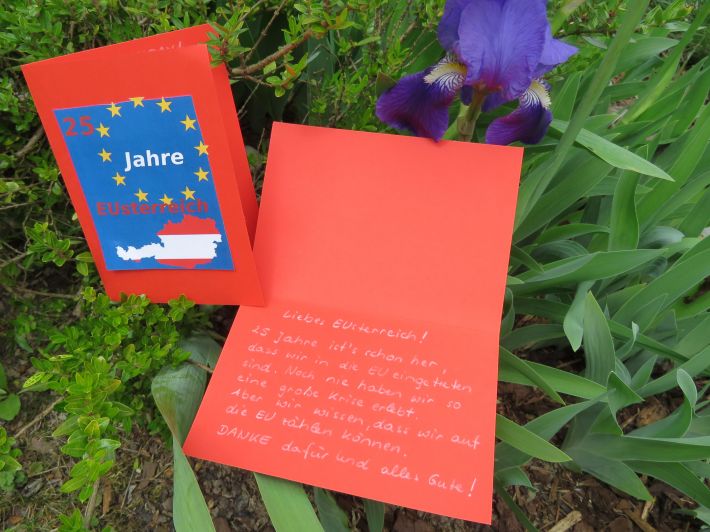 25
Jahre
EUsterreich
Liebes EUsterreich!
25 Jahre ist's schon her,
dass wir in die EU eingetreten
sind. Noch nie haben wir so
eine große Krise erlebt.
Aber wir wissen, dass wir auf
die EU zählen können.
DANKE dafür und alles Gute!